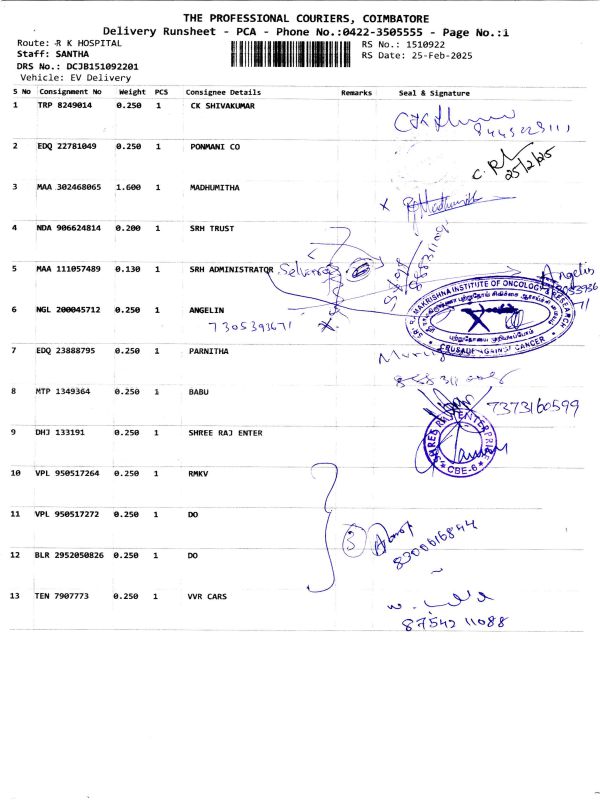 THE PROFESSIONAL COURIERS, COIMBATORE
Delivery Runsheet - PCA - Phone No.:0422-3505555 - Page No.:1
Route: R K HOSPITAL
Staff: SANTHA
DRS No.: DCJB151092201
Vehicle: EV Delivery
RS No.: 1510922
RS Date: 25-Feb-2025
S No Consignment No Weight PCS Consignee Details Remarks Seal & Signature
1 TRP 8249014 0.250 1 CK SHIVAKUMAR
2 EDQ 22781049 0.250 1 PONMANI CO
25/2/25
3 MAA 302468065 1.600 1 MADHUMITHA
Madhumith
4 NDA 906624814 0.200 1 SRH TRUST
5 MAA 111057489 0.130 1 SRH ADMINISTRATOR
Angelin
6 NGL 200045712 0.250 1 ANGELIN
7305393671
SRI RAMAKRISHNA INSTITUTE OF ONCOLOGY & RESEARCH
CRUSADE AGAINST CANCER
7 EDQ 23888795 0.250 1 PARNITHA
8 MTP 1349364 0.250 1 BABU
7373160599
9 DHJ 133191 0.250 1 SHREE RAJ ENTER
SHREE RAJ ENTERPRISE
CBE-6
10 VPL 950517264 0.250 1 RMKV
11 VPL 950517272 0.250 1 DO
3
8300616844
12 BLR 2952050826 0.250 1 DO
13 TEN 7907773 0.250 1 VVR CARS
8754211088